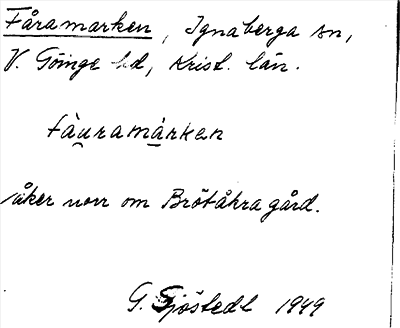 Fåramarken, Ignaberga sn,
V. Göinge hd, Krist. län.
fàu̲ramá̲rken
åker norr om Brötåkra gård.
G. Sjöstedt 1949